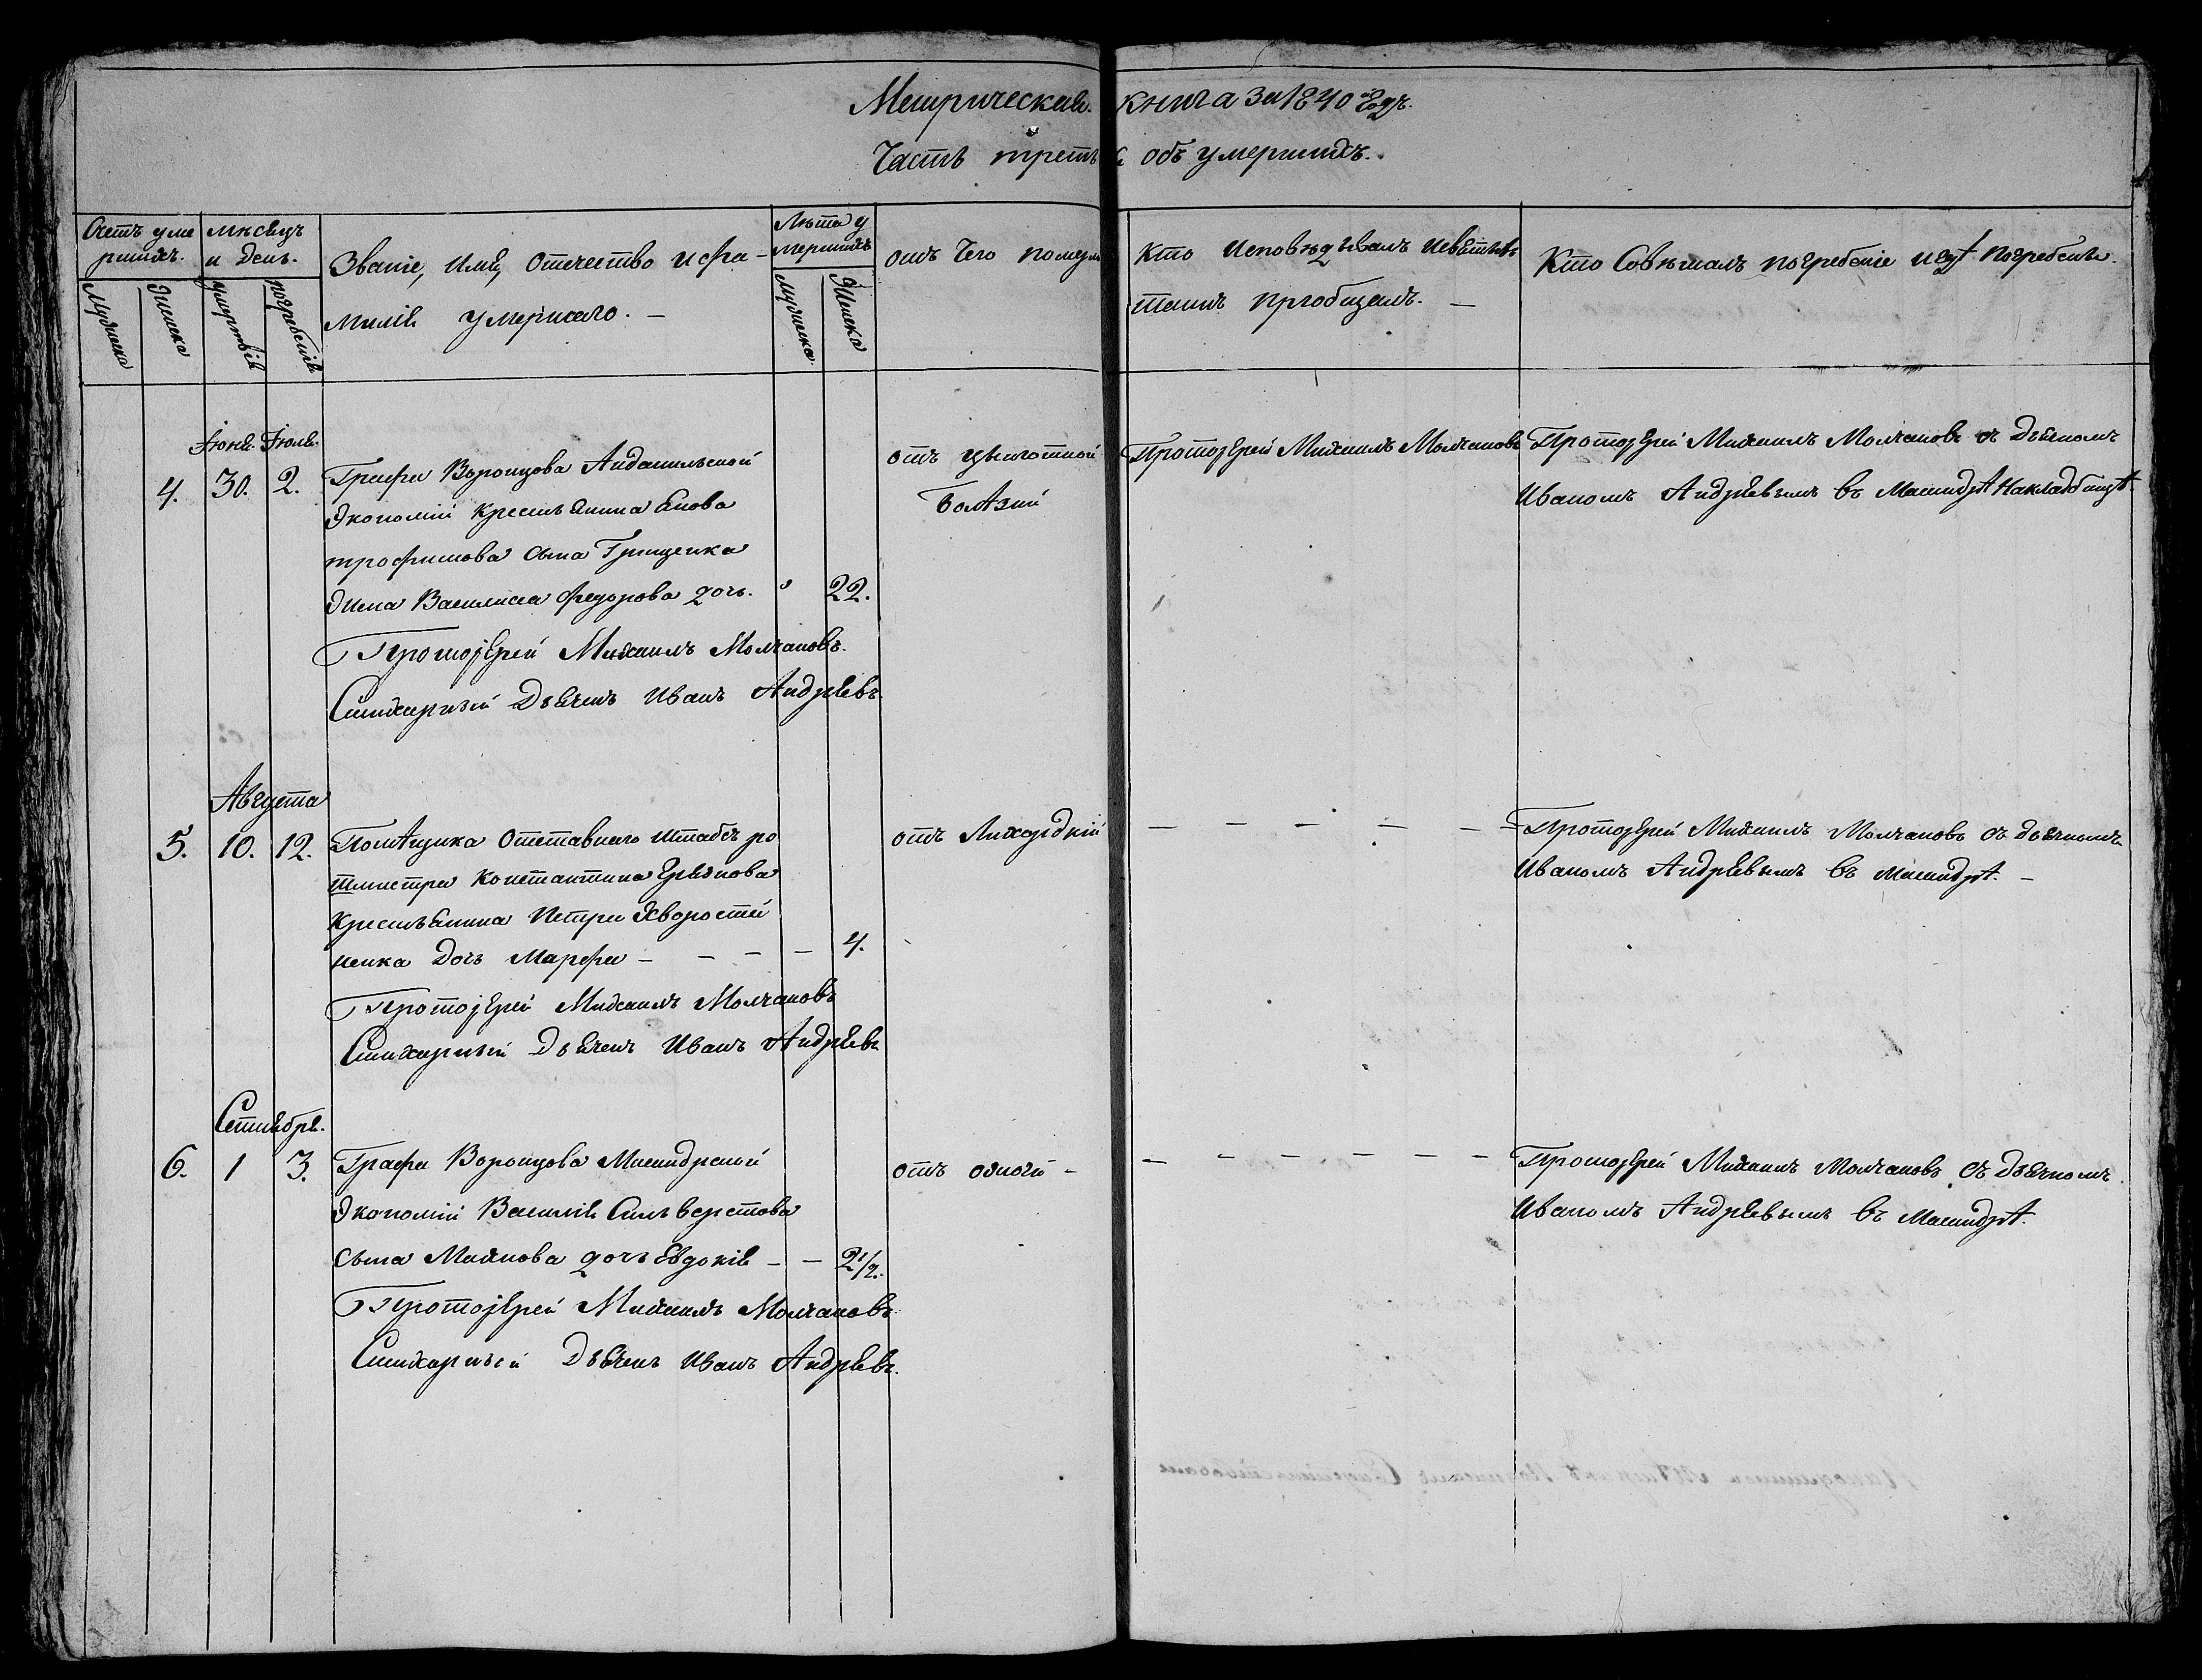 Метрическая книга за 1840 годъ.
Часть третья объ умершихъ.
Счетъ уме
ршихъ.
Мужеска
Женска
мѣсяцъ
и день.
умертвія
погребенія
Званіе, Имя, Отечество и фа-
милія умершаго. —
Лѣта у
мершихъ
мужеска
Женска
отъ чего помер
Кто Исповѣдывалъ И святыхъ
таинъ пріобщалъ. —
Кто Совѣршалъ погребеніе и гдѣ погребены.
4.
Іюня. Іюля.
30. 2.
Графа Воронцова Айданильской
Экономіи крестьянина
трофимова сына Грищенка
жена Василиса федорова дочь. 22.
Протоіерей Михаилъ Молчановъ.
Стихарный Дьячекъ Иванъ Андрѣевъ.
отъ чахотной
болѣзни
Протоіерей Михаилъ Молчановъ
Протоіерей Михаилъ Молчановъ съ дьячкомъ
Иваномъ Андрѣевымъ въ Масандрѣ на кладбищѣ.
Августа
5. 10. 12.
Помѣщика отставнаго штабсъ ро
тмистра константина
крестьянина Петра Хворостя
ненка дочь Марфа — — — — 4.
Протоіерей Михаилъ Молчановъ
Стихарный Дьячекъ Иванъ Андрѣевъ
отъ Лихорадки
— — — — — —
Протоіерей Михаилъ Молчановъ съ дьячкомъ
Иваномъ Андрѣевымъ въ Масандрѣ. —
Сентября.
6. 1 3.
Графа Воронцова Масандрской
Экономіи Василія Сильверстова
сына дочь Евдокія — — 2 1/2.
Протоіерей Михаилъ Молчановъ
Стихарный Дьячекъ Иванъ Андрѣевъ.
отъ —
— — — — — — —
Протоіерей Михаилъ Молчановъ съ дьячкомъ
Иваномъ Андрѣевымъ въ Масандрѣ.